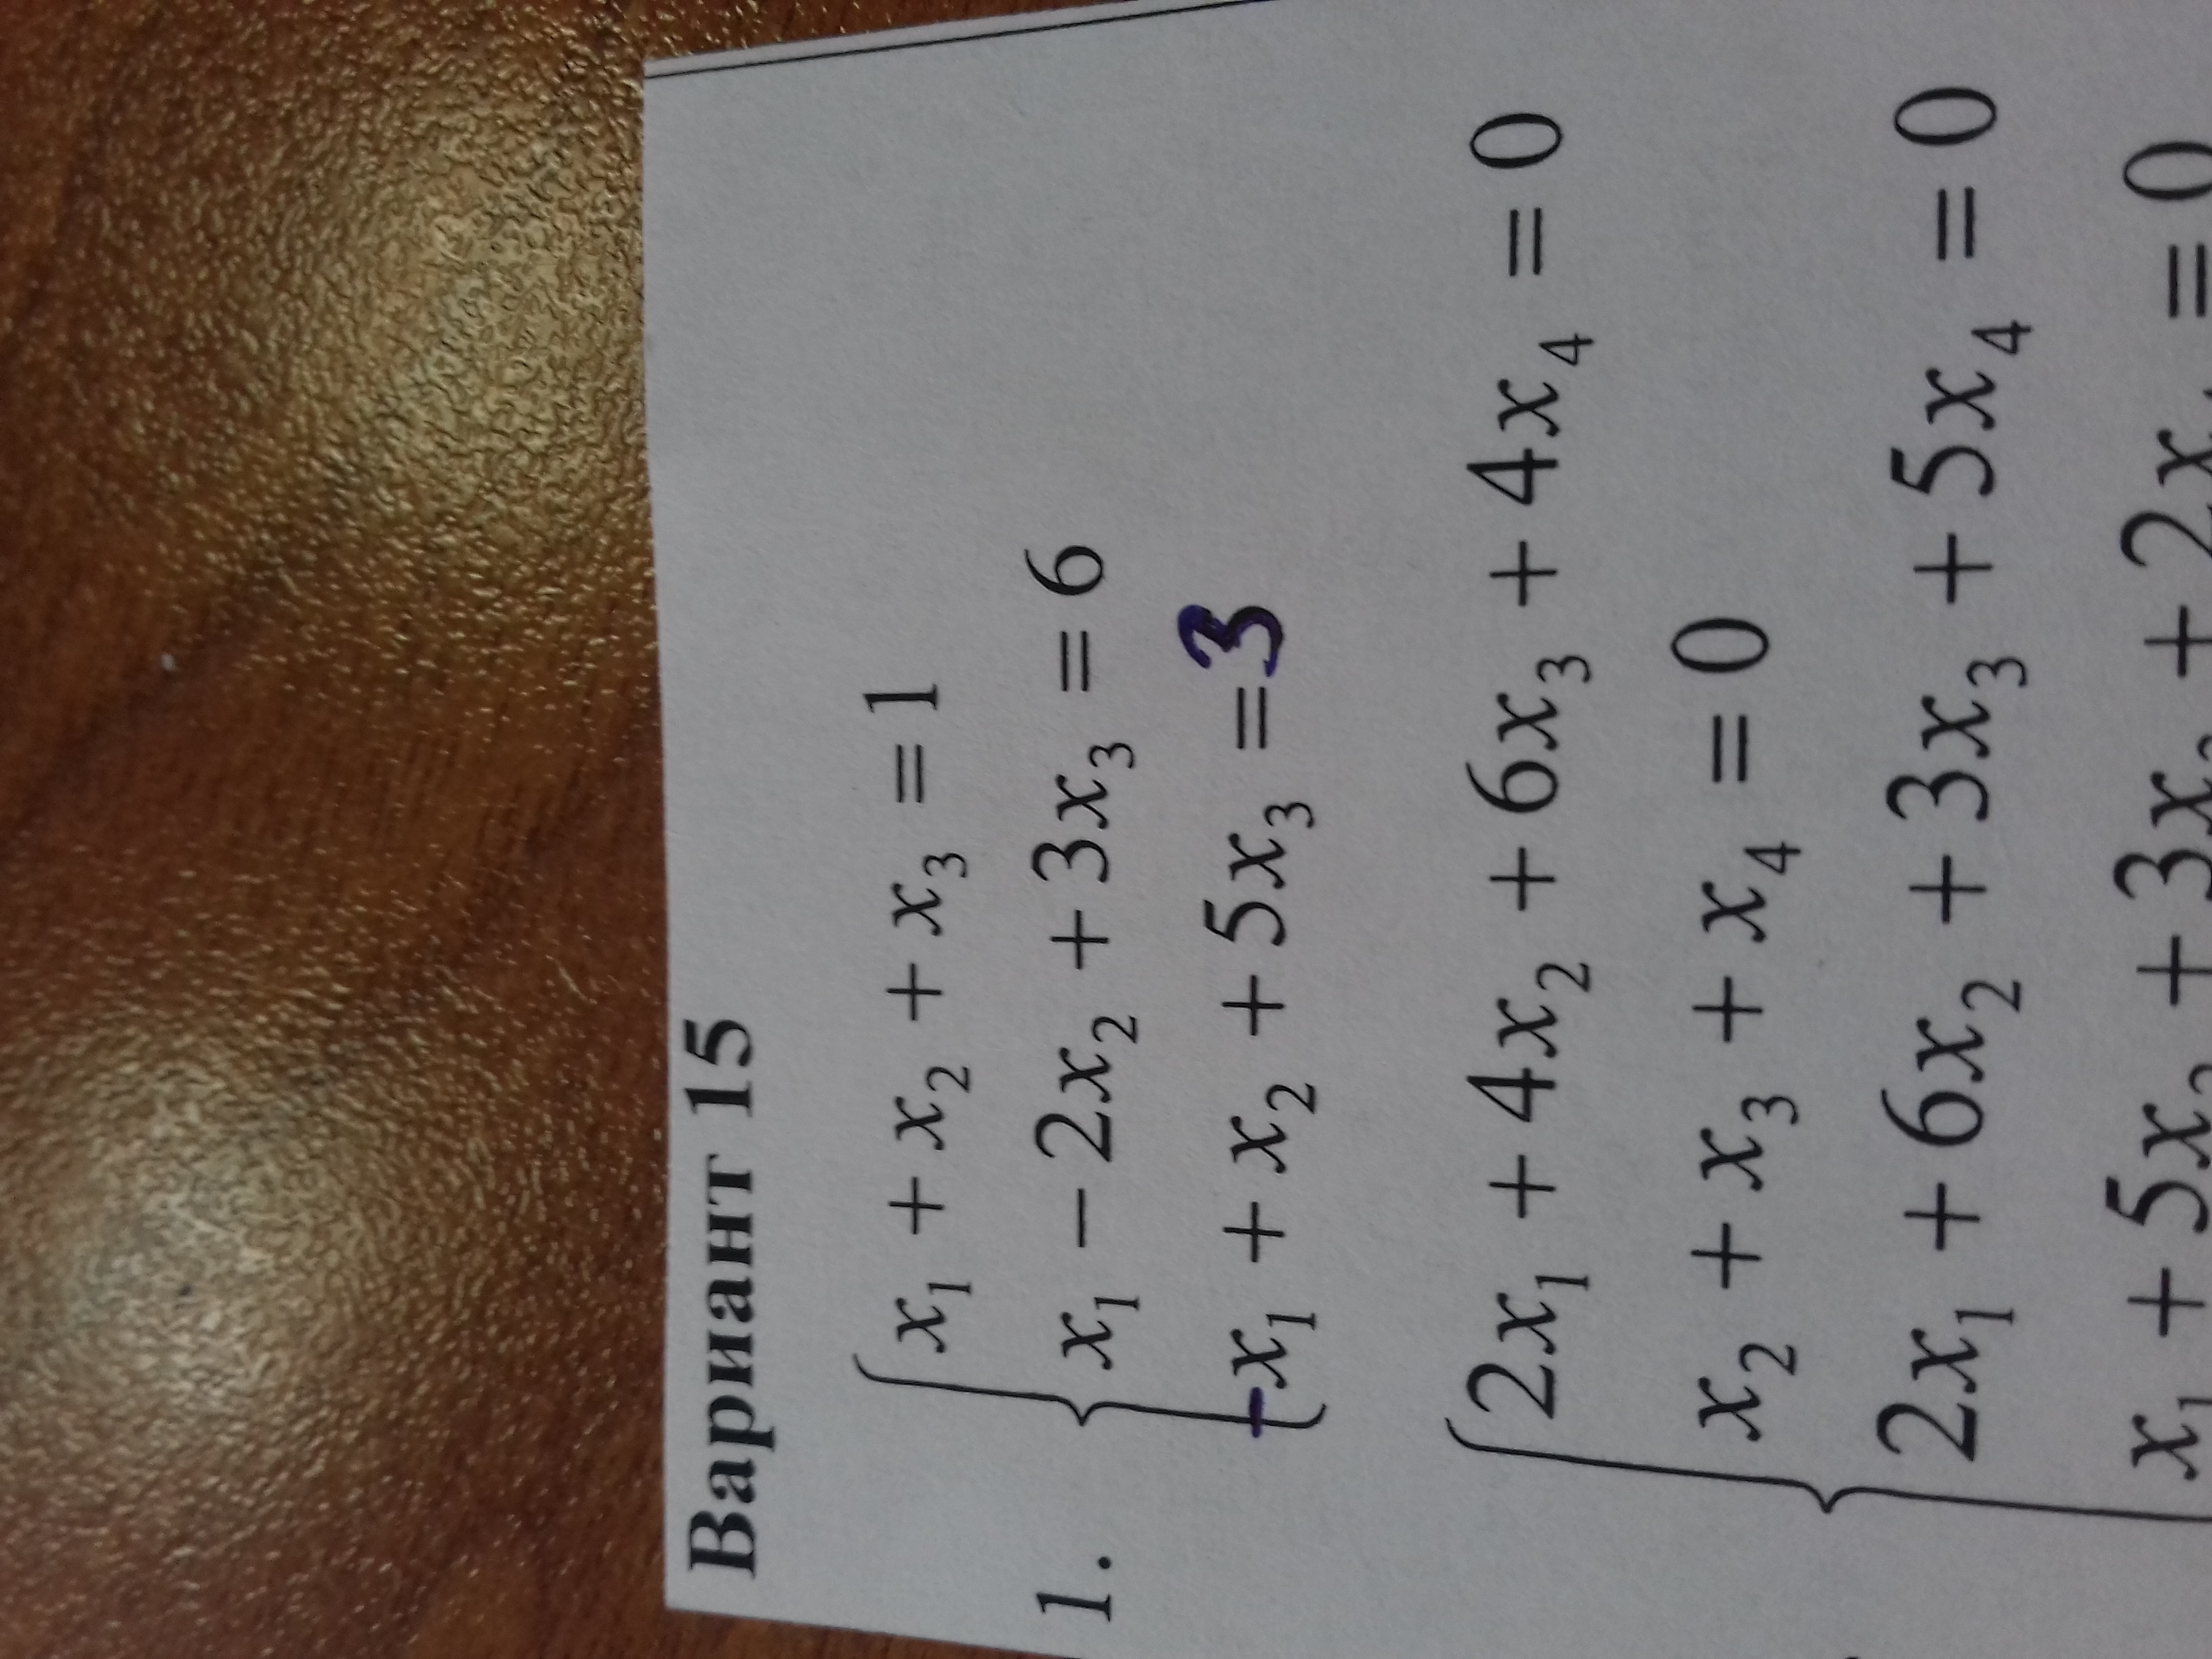 Вариант 15
x₁ + x₂ + x₃ = 1
1. x₁ − 2x₂ + 3x₃ = 6
−x₁ + x₂ + 5x₃ = 3
2x₁ + 4x₂ + 6x₃ + 4x₄ = 0
x₂ + x₃ + x₄ = 0
2x₁ + 6x₂ + 3x₃ + 5x₄ = 0
x₁ + 5x₂ + 3x₃ + 2x₄ = 0